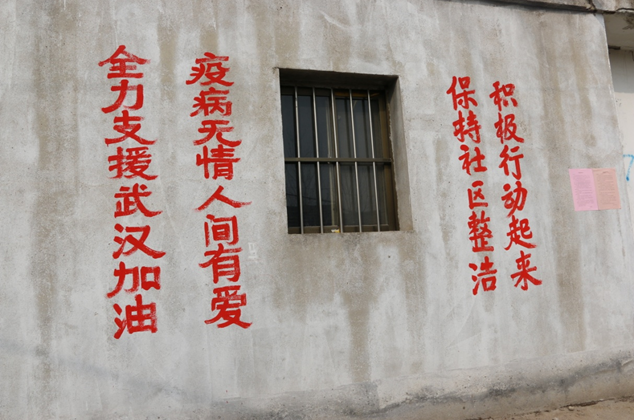 积极行动起来
保特社区整洁
疫病无情人间有爱
全力支援武汉加油